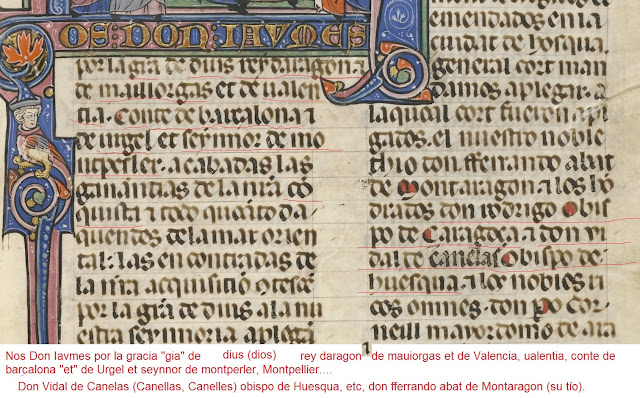 OS DON IAUMES
por la gra de dius rey daragon ⁊
de mauiorgas et de ualen
tia. Conte de barcalona ⁊
de urgel et seynnor de mo
ntperler. acabadas las
ganantias de la nra cō
quista ⁊ todo quanto da
quentes de la mar orien
tal: las encontradas de
la nra acquisitiō
por la gra de dius a la nu
estra seynnoria aplega
emendados en la
ciudat de hosqua.
general cort man
damos aplegar. a
la qual cort fueron aple
gados. el nuestro noble
thio don fferrando abat
de Montaragon ⁊ los hō
drados don rodrigo obis
po de Caragoça ⁊ don vi
dal de canelas obispo de
huesqua ⁊ los nobles ri
cos omnes. don po Cor
neill mayordomo de ara
Nos Don Iavmes por la gracia "gia" de dius (dios) rey daragon de mauiorgas et de Valencia, ualentia, conte de
barçalona "et" de Urgel et seynnor de montperler, Montpellier....
Don Vidal de Canelas (Canellas, Canelles) obispo de Huesqua, etc, don fferrando abat de Montaragon (su tío).